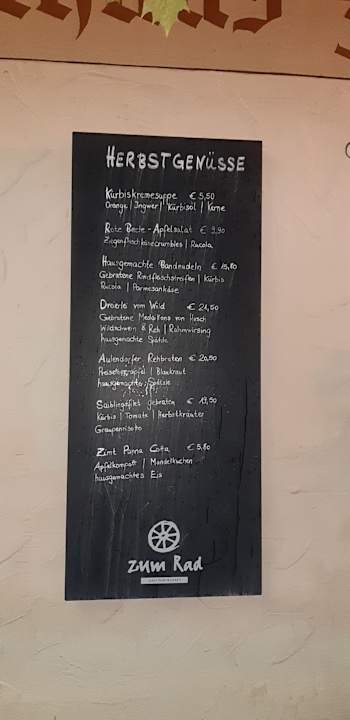 HERBSTGENÜSSE
Kürbiskremesuppe € 5,50
Orange | Ingwer | Kürbisöl | Kerne
Rote Beete - Apfelsalat € 9,90
Ziegenfrischkäsecrumbles | Rucola
Hausgemachte Bandnudeln € 15,80
Gebratene Rindfleischstreifen | Kürbis
Rucola | Parmesankäse
Dreierlei vom Wild € 24,50
Gebratene Medaillons von Hirsch
Wildschwein & Reh | Rahmwirsing
hausgemachte Spätzle
Aulendorfer Rehbraten € 20,50
Preiselbeerapfel | Blaukraut
hausgemachte Spätzle
Saiblingsfilet gebraten € 19,50
Kürbis | Tomate | Herbstkräuter
Graupenrisotto
Zimt Panna Cotta € 5,80
Apfelkompott | Mandelkuchen
hausgemachtes Eis
zum Rad